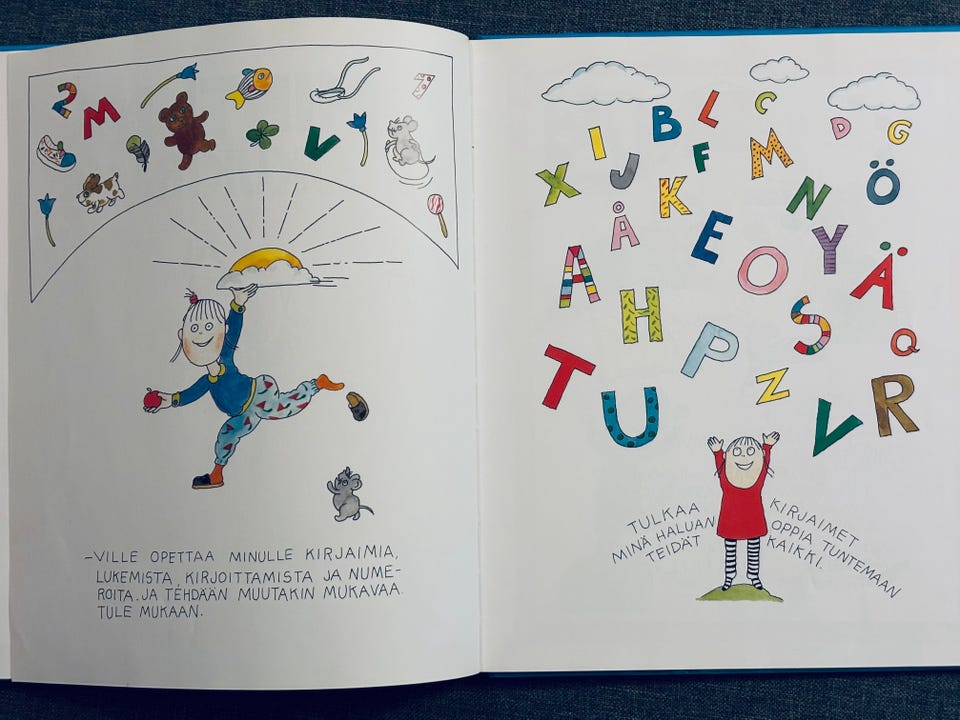 2 M 7
V
–VILLE OPETTAA MINULLE KIRJAIMIA,
LUKEMISTA, KIRJOITTAMISTA JA NUME-
ROITA. JA TEHDÄÄN MUUTAKIN MUKAVAA.
TULE MUKAAN.
I B L C D G
X J F M Ö
Å K E N Y
A O Ä
H P S Q
T U Z V R
TULKAA KIRJAIMET
MINÄ HALUAN OPPIA TUNTEMAAN
TEIDÄT KAIKKI.